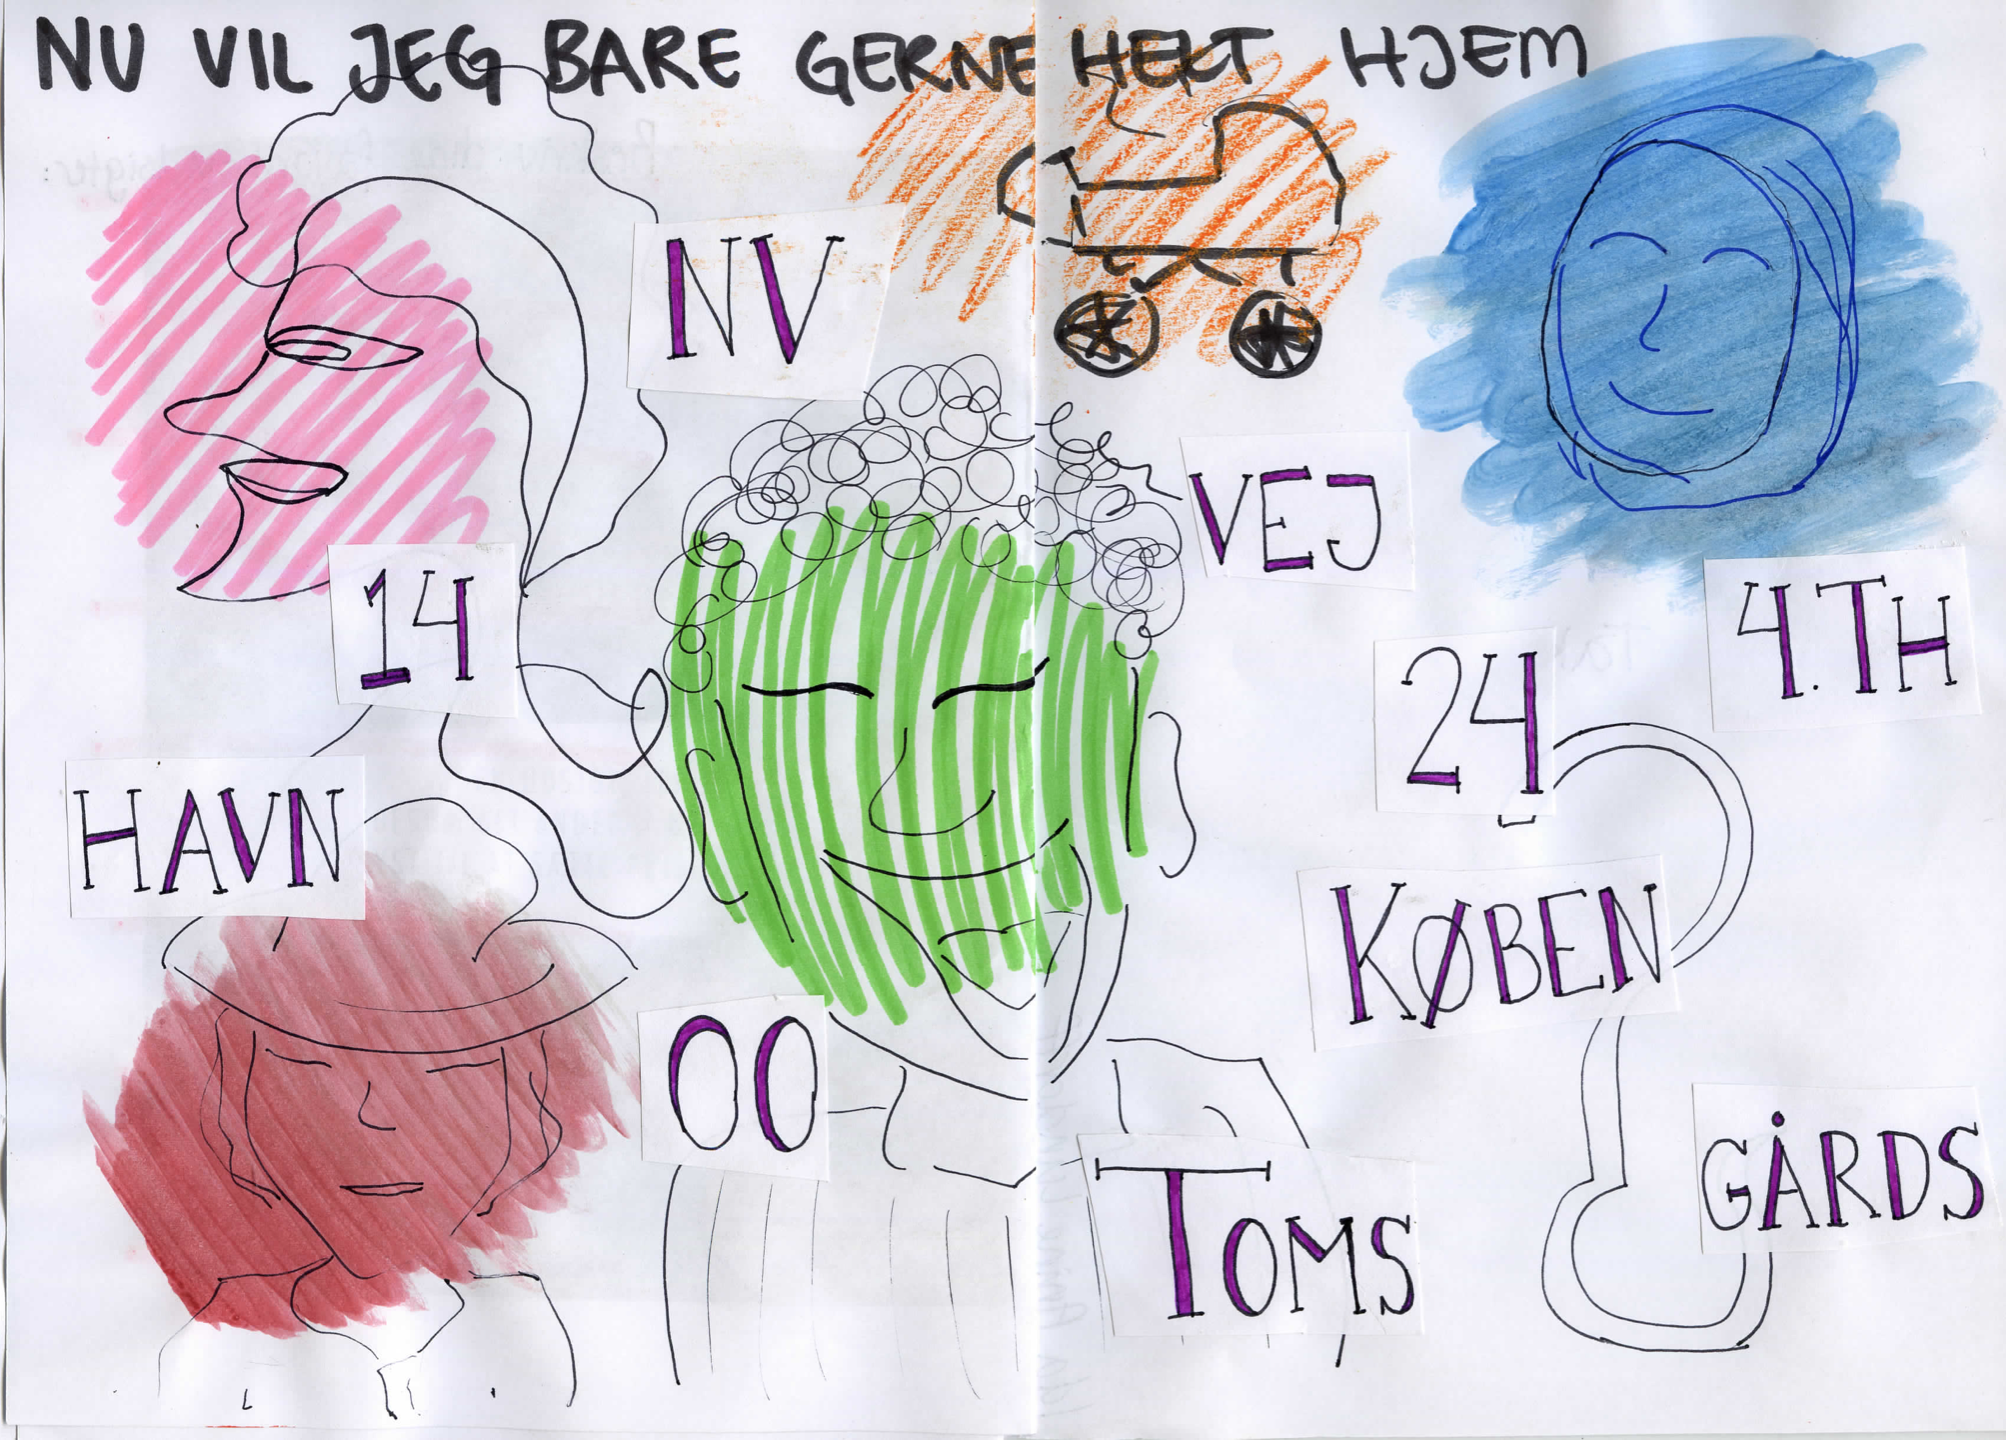 NU VIL JEG BARE GERNE HELT HJEM
NV
VEJ
14
4.TH
24
HAVN
KØBEN
OO
TOMS
GÅRDS